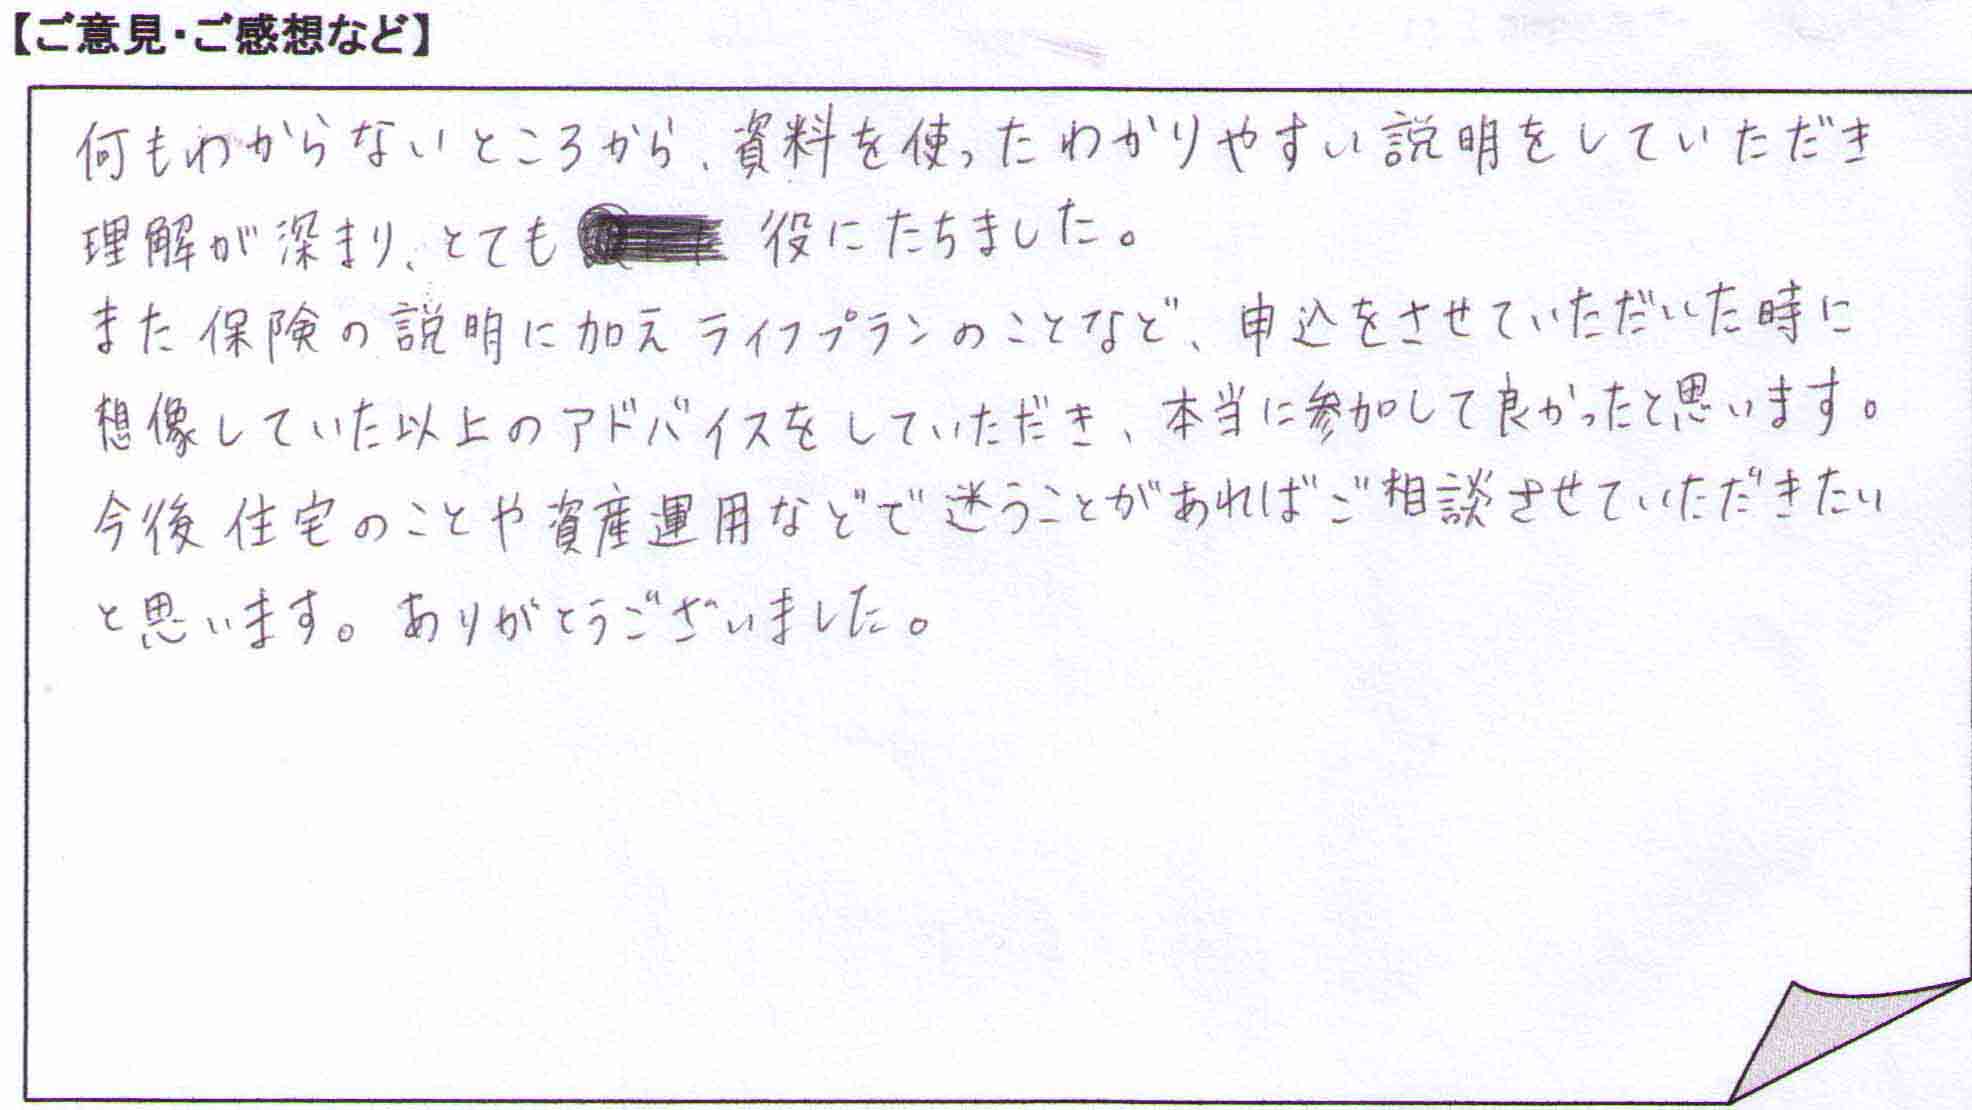 【ご意見・ご感想など】
何もわからないところから、資料を使ったわかりやすい説明をしていただき
理解が深まり、とても 役にたちました。
また保険の説明に加えライフプランのことなど、申込をさせていただいた時に
想像していた以上のアドバイスをしていただき、本当に参加して良かったと思います。
今後住宅のことや資産運用などで迷うことがあればご相談させていただきたい
と思います。ありがとうございました。